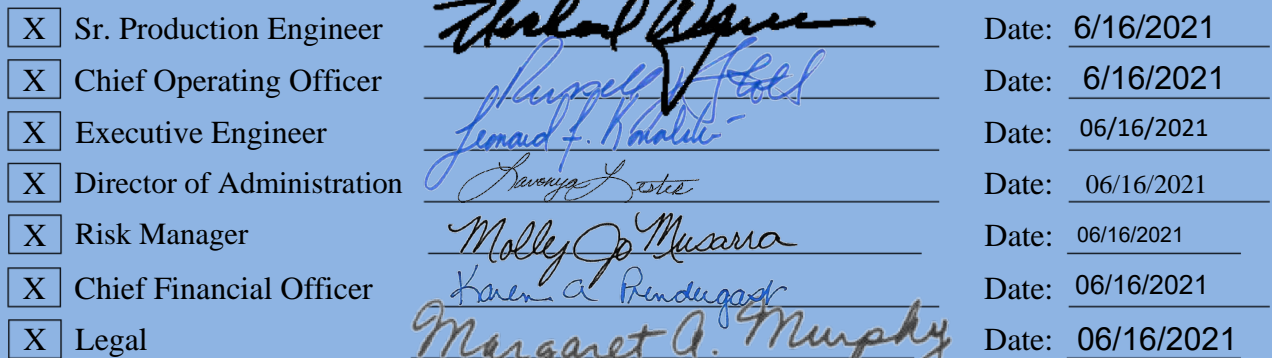 X Sr. Production Engineer Date: 6/16/2021
X Chief Operating Officer Russell Date: 6/16/2021
X Executive Engineer Leonard F. Date: 06/16/2021
X Director of Administration Lavonya Lester Date: 06/16/2021
X Risk Manager Molly Jo Musarra Date: 06/16/2021
X Chief Financial Officer Karen A Prendergast Date: 06/16/2021
X Legal Margaret A. Murphy Date: 06/16/2021